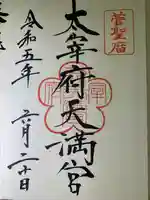 菅聖廟
太宰府天満宮
令和五年
六月二十日